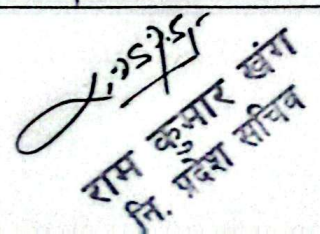 राम कुमार खंग
नि. प्रदेश सचिव